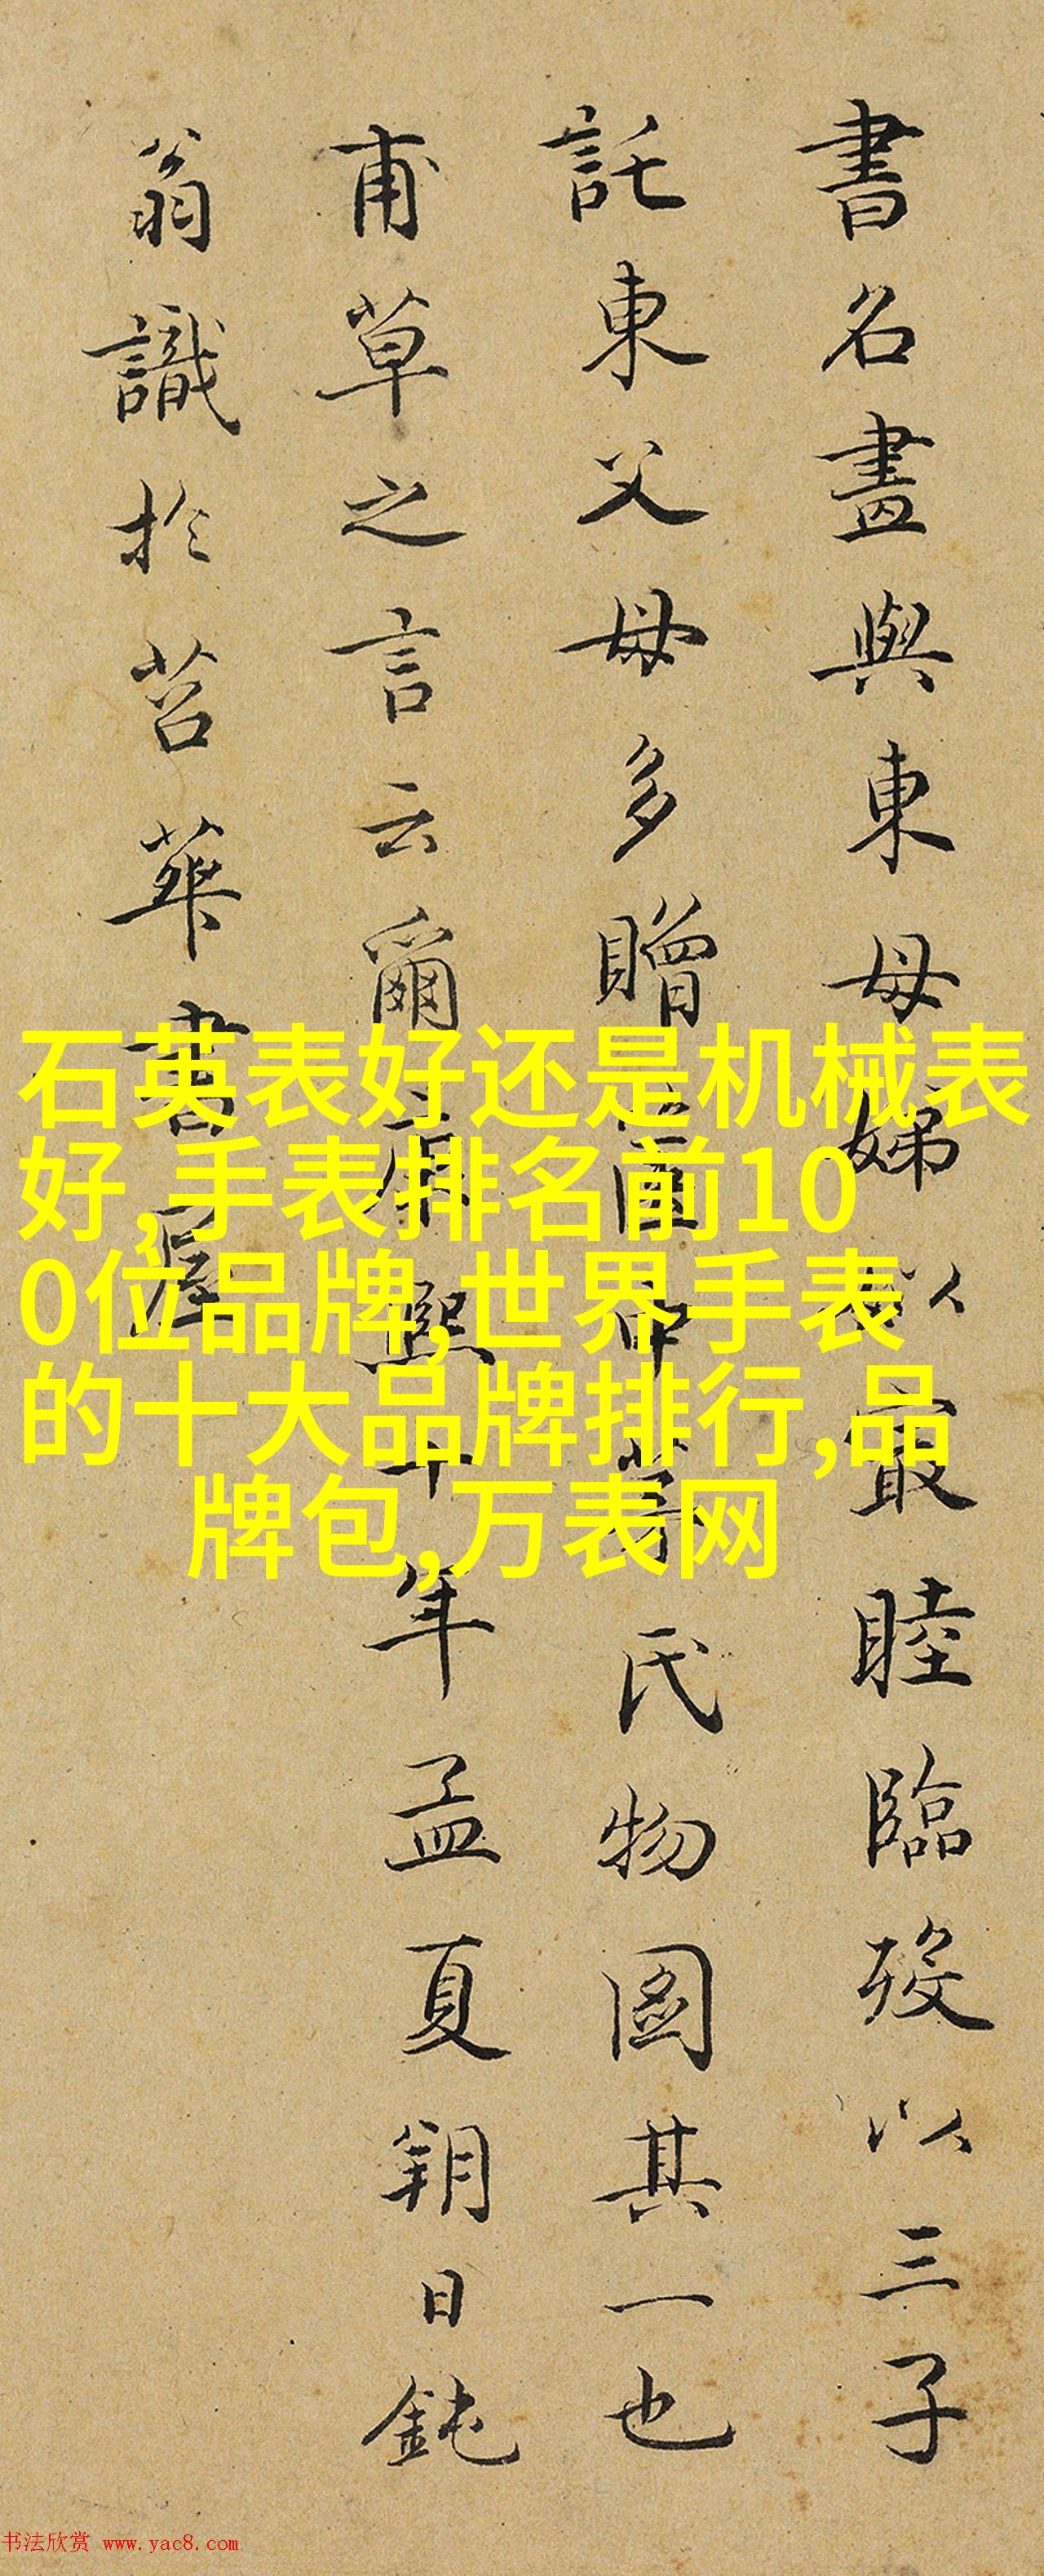 書名畫與東母娣姒最睦臨歿以三子
託東父母多贈中氏物圖其一也
甫草之言云爾康熙十年孟夏朔日鈍
翁識於苕華書屋
石英表好还是机械表
好,手表排名前10
0位品牌,世界手表
的十大品牌排行,品
牌包,万表网
书法欣赏 www.yac8.com